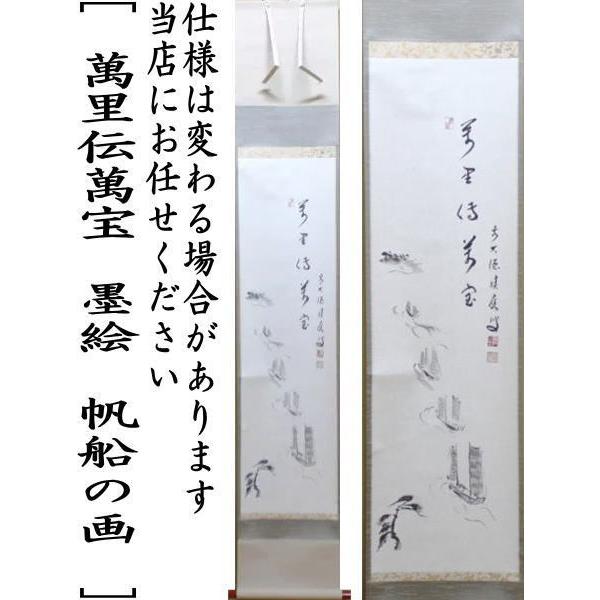 仕様は変わる場合があります
当店にお任せください
[ 萬里伝萬宝 墨絵 帆船の画 ]
萬里傳萬宝
萬里傳萬宝